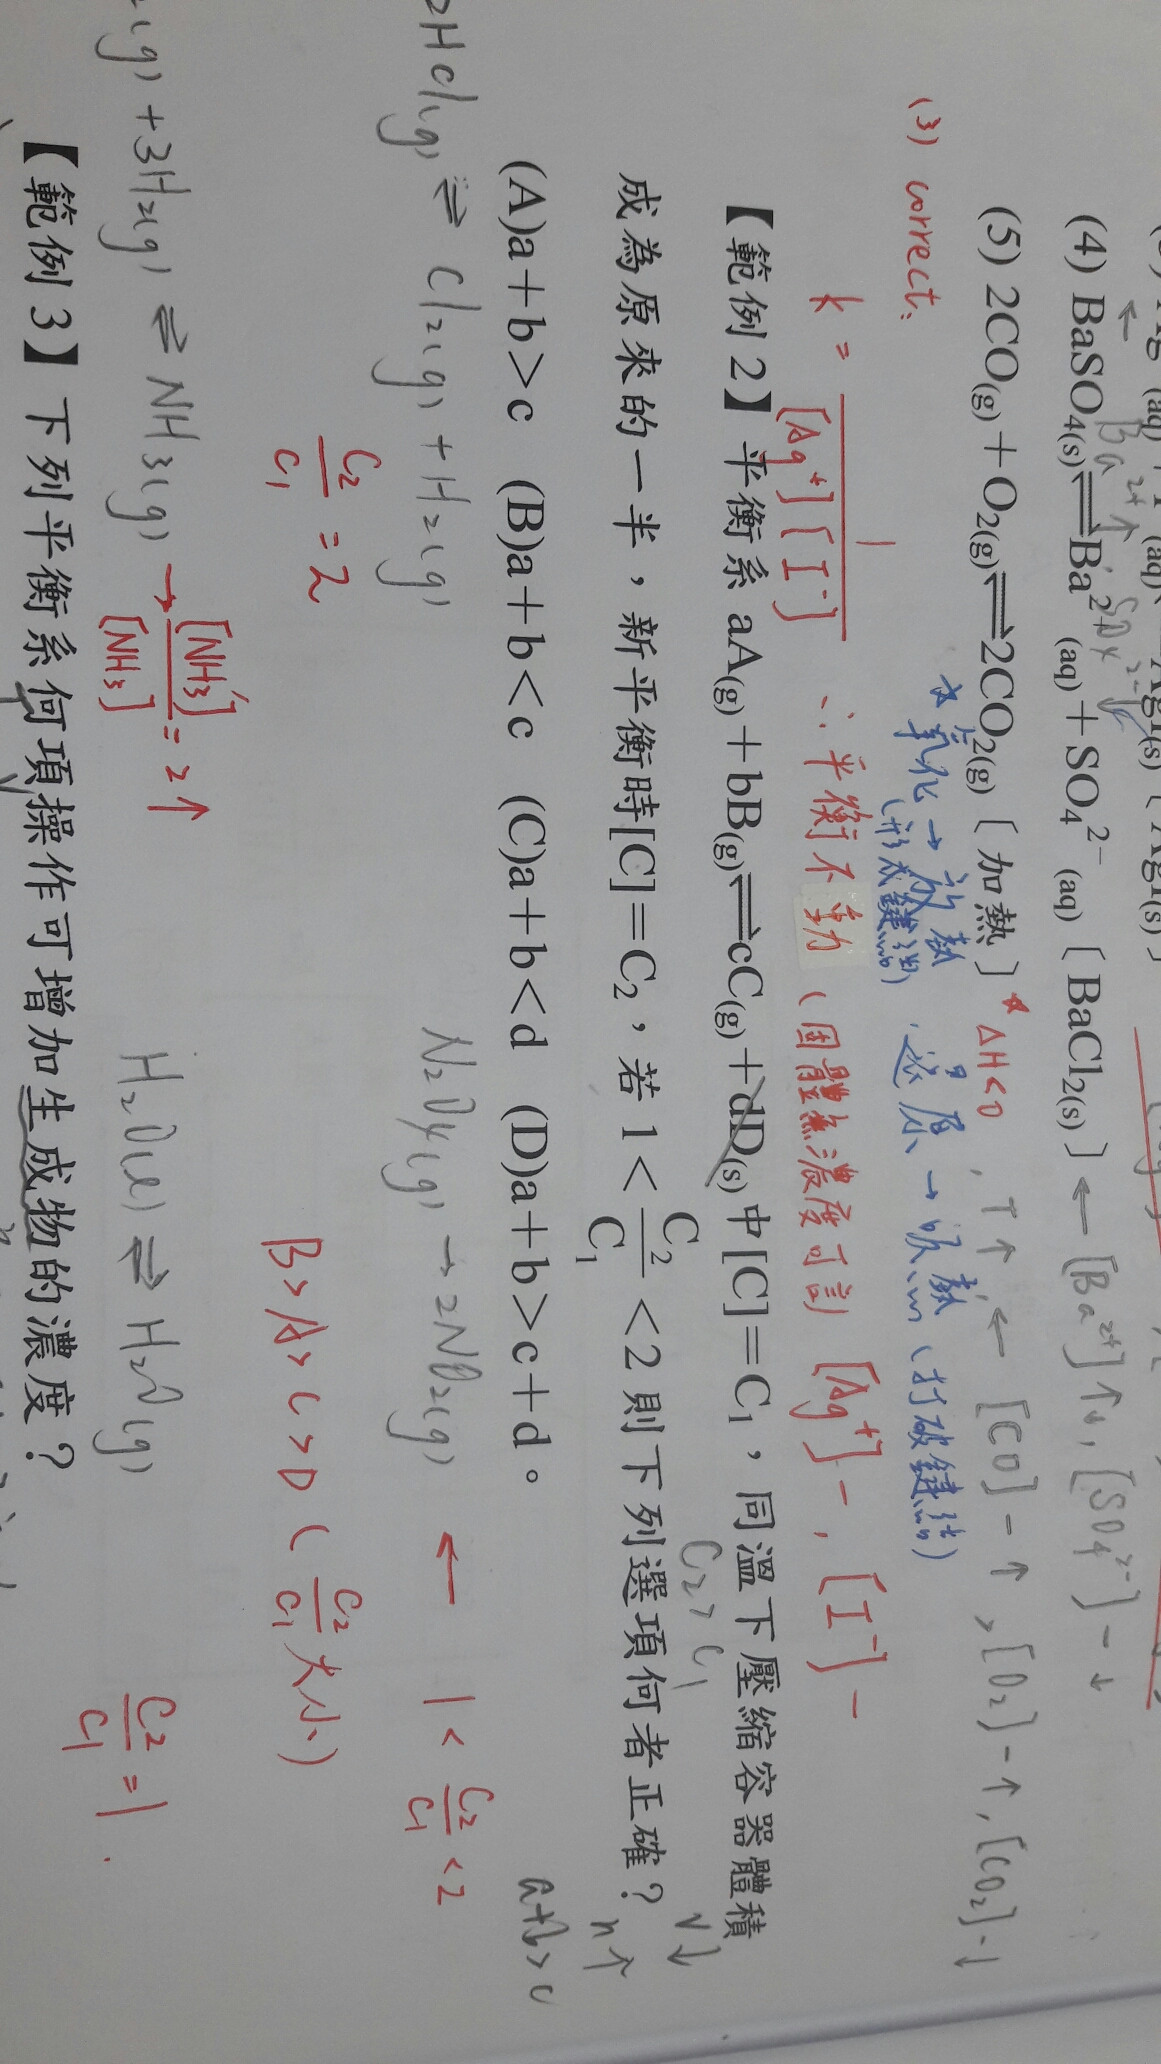 (4) BaSO₄(s)⇌Ba²⁺(aq)+SO₄²⁻(aq)〔BaCl₂(s)〕 ← [Ba²⁺]↑, [SO₄²⁻]-↓
(5) 2CO(g)+O₂(g)⇌2CO₂(g)〔加熱〕 * ΔH<0, T↑, ← [CO]-↑, [O₂]-↑, [CO₂]-↓
* 氧化→放熱 還原→吸熱 (打破鍵結)
(形成鍵結)
(3) correct.
k = 1/[Ag⁺][I⁻] ∴平衡不動 (固體濃度可言) [Ag⁺]-, [I⁻]-
【範例 2】平衡系 aA(g)+bB(g)⇌cC(g)+dD(s)中[C]=C₁，同溫下壓縮容器體積
C₂>C₁ V↓
成為原來的一半，新平衡時[C]=C₂，若 1<C₂/C₁<2 則下列選項何者正確？
n↑
(A)a+b>c (B)a+b<c (C)a+b<d (D)a+b>c+d。
a+b>c
2HCl(g) ⇌ Cl₂(g) + H₂(g)
C₂/C₁ = 2
N₂O₄(g) → 2NO₂(g) ← 1 < C₂/C₁ < 2
B>A>C>D (C₂/C₁ 大小)
₂(g) + 3H₂(g) ⇌ NH₃(g) → [NH₃']/[NH₃] = 2↑
H₂O(l) ⇌ H₂O(g) C₂/C₁ = 1.
【範例 3】下列平衡系何項操作可增加生成物的濃度？